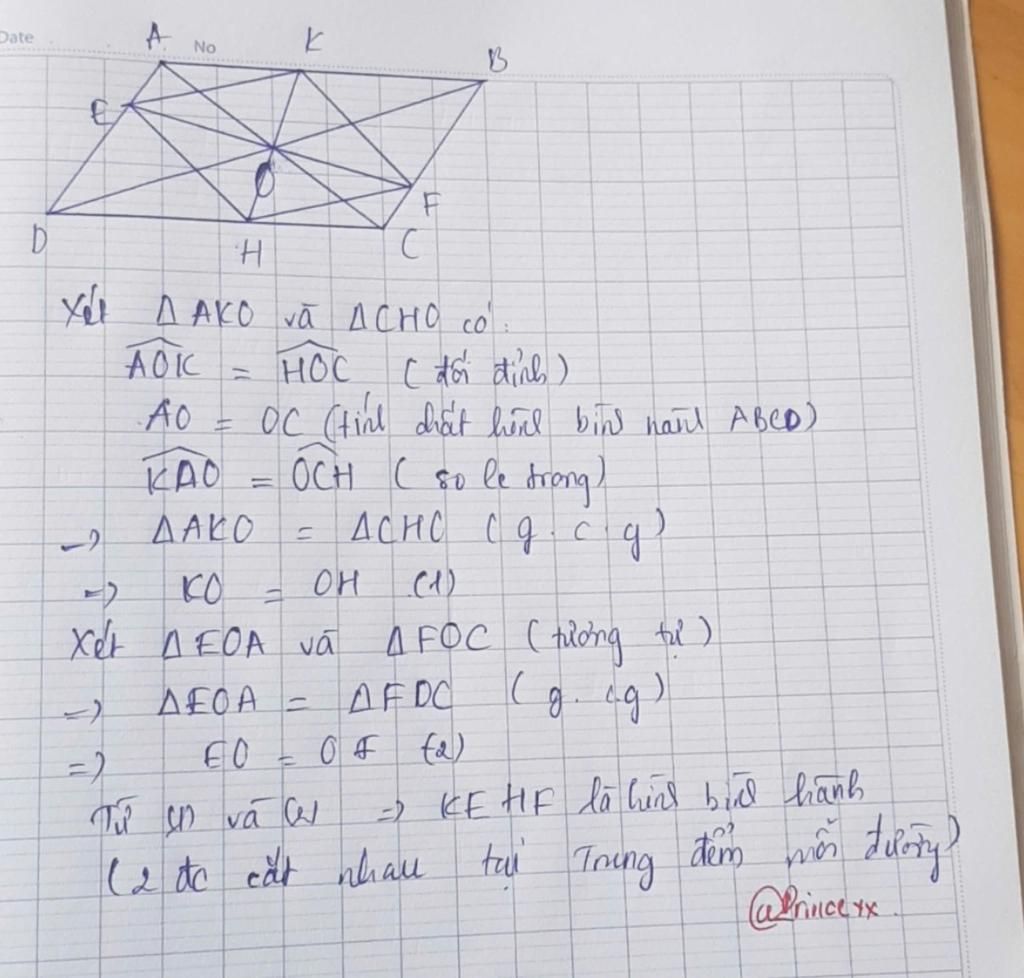 Date
No
A K B
E
O
F
D H C
Xét ΔAKO và ΔCHO có:
\widehat{AOK} = \widehat{HOC} (đối đỉnh)
AO = OC (tính chất hình bình hành ABCD)
\widehat{KAO} = \widehat{OCH} (so le trong)
→ ΔAKO = ΔCHO (g.c.g)
=> KO = OH (1)
Xét ΔEOA và ΔFOC (tương tự)
=> ΔEOA = ΔFOC (g.cg)
=> EO = OF (2)
Từ (1) và (2) => KEHF là hình bình hành
(2 đc cắt nhau tại Trung điểm mỗi đường)
@Princexx.